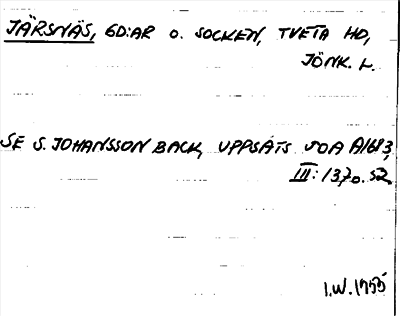 JÄRSNÄS, GD:AR O. SOCKEN, TVETA HD,
JÖNK. L.
SE S. JOHANSSON BACK, UPPSATS JOA A1683,
III: 13, 70. 52.
I.W. 1955